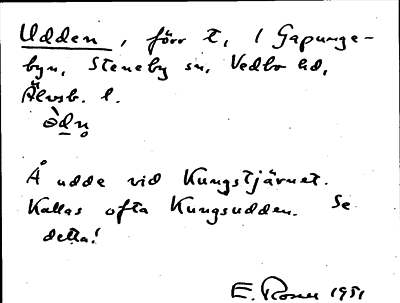 Udden, förr t, 1 Gapunge-
byn, Steneby sn, Vedbo hd,
Älvsb. l.
Å udde vid Kungstjärnet.
Kallas ofta Kungsudden. Se
detta!
E. Rosell 1951